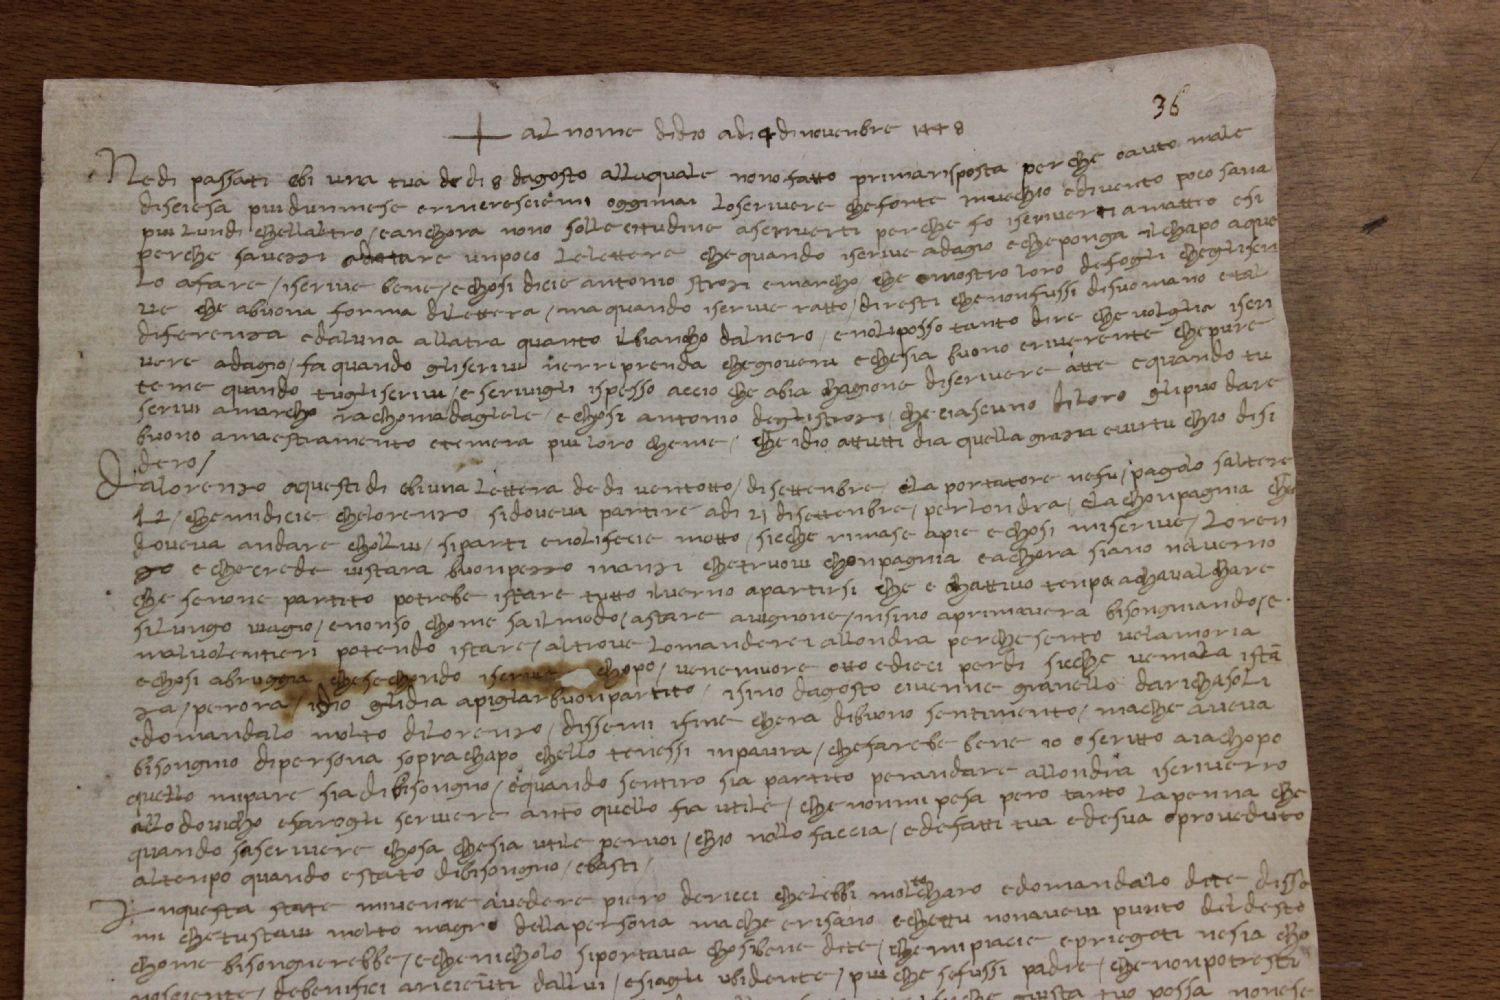 36
+ al nome didio adi 4 dinovenbre 1448
Nedi passati ebi una tua de di 8 dagosto allaquale nono fatto prima risposta perche o auto male
disciesa piu dunmese ermeresciemi oggimai loscrivere che forte invechio e divento poco sana
piu lundi chellaltro / e anchora nono sollecitudine a scriverti perche fo iscriverti a matteo e si
perche savezi adettare unpoco le lettere che quando iscrive adagio e cheponga il chapo a que
lo a fare / iscrive bene / e chosi dicie antonio strozi e marcho che mostro loro de fogli chegliscri
ve che a buona forma di lettera / ma quando iscrive ratto / diresti che non fussi di suo mano e tal
diferenza e daluna allatra quanto ilbiancho dalnero / e nolliposso tanto dire che voglia iscri
vere adagio / fa quando gliscrivi nerriprenda chegiovera e chesia buono e riverente chepure
teme quando tugliscrivi / e scrivigli ispesso accio che abia chagione discrivere a tte e quando tu
scrivi a marcho rachomadaglele / e chosi antonio deglistrozi / che ciascuno diloro glipuo dare
buono amaestramento e temera piu loro cheme / che idio attutti dia quella grazia e virtu chio disi
dero /
Dalorenzo aquesti di ebi una lettera de di ventotto / disettenbre / e la portatore nefu / pagolo
che midicie chelorenzo sidoveva partire adi 21 disettenbre / perlondra / e la chonpagnia che
doveva andare chollui / siparti e nolifecie motto / sicche rimase apie e chosi miscrive / loren
zo e checrede vistara buonpezo inanzi chetruovi chonpagnia e achora siano nelverno
che senone partito potrebe istare tutto ilverno a partirsi che e chattivo tenpo a chavalchare
silungo viagio / e nonso chome sailmodo / a stare a vignone / insino aprimavera bisongniando / e
malvolentieri potendo istare / altrove lomanderei allondra perche sento velamoria
e chosi abruggia chesechondo iscrive chopo / venemuore otto e dieci perdi sicche vemala ista
za / perora / idio glidia apigliarbuonpartito / isino dagosto civenne granello darichasoli
e domandalo molto dilorenzo / dissemi isine chera dibuono sentimento / mache aveva
bisongnio dipersona soprachapo chello tenessi inpaura / chefarebe bene io o scritto aiachopo
quello mipare sia dibisongno / e quando sentiro sia partito perandare allondra iscriverro
allodovicho e farogli scrivere anto quello fia utile / che nonmi pesa pero tanto lapenna che
quando sascrivere chosa chesia utile pervoi / chio nollo faccia / e defatti tua e desua o proveduto
altenpo quando e stato dibisongno / e basti /
Inquesta state mivenne a vedere piero dericci chelebbi molto charo e domandalo dite disse
mi chetustavi molto magro dellapersona ma che erisano e chettu nonavevi punto deldesto
chome bisongnerebbe / e chenicholo siportava chosibene dite / chemipiacie e priegoti nesia cho
noscente / debenifici ricieuti dallui / e siagli ubidente / piu che sefussi padre / chenonpotresti